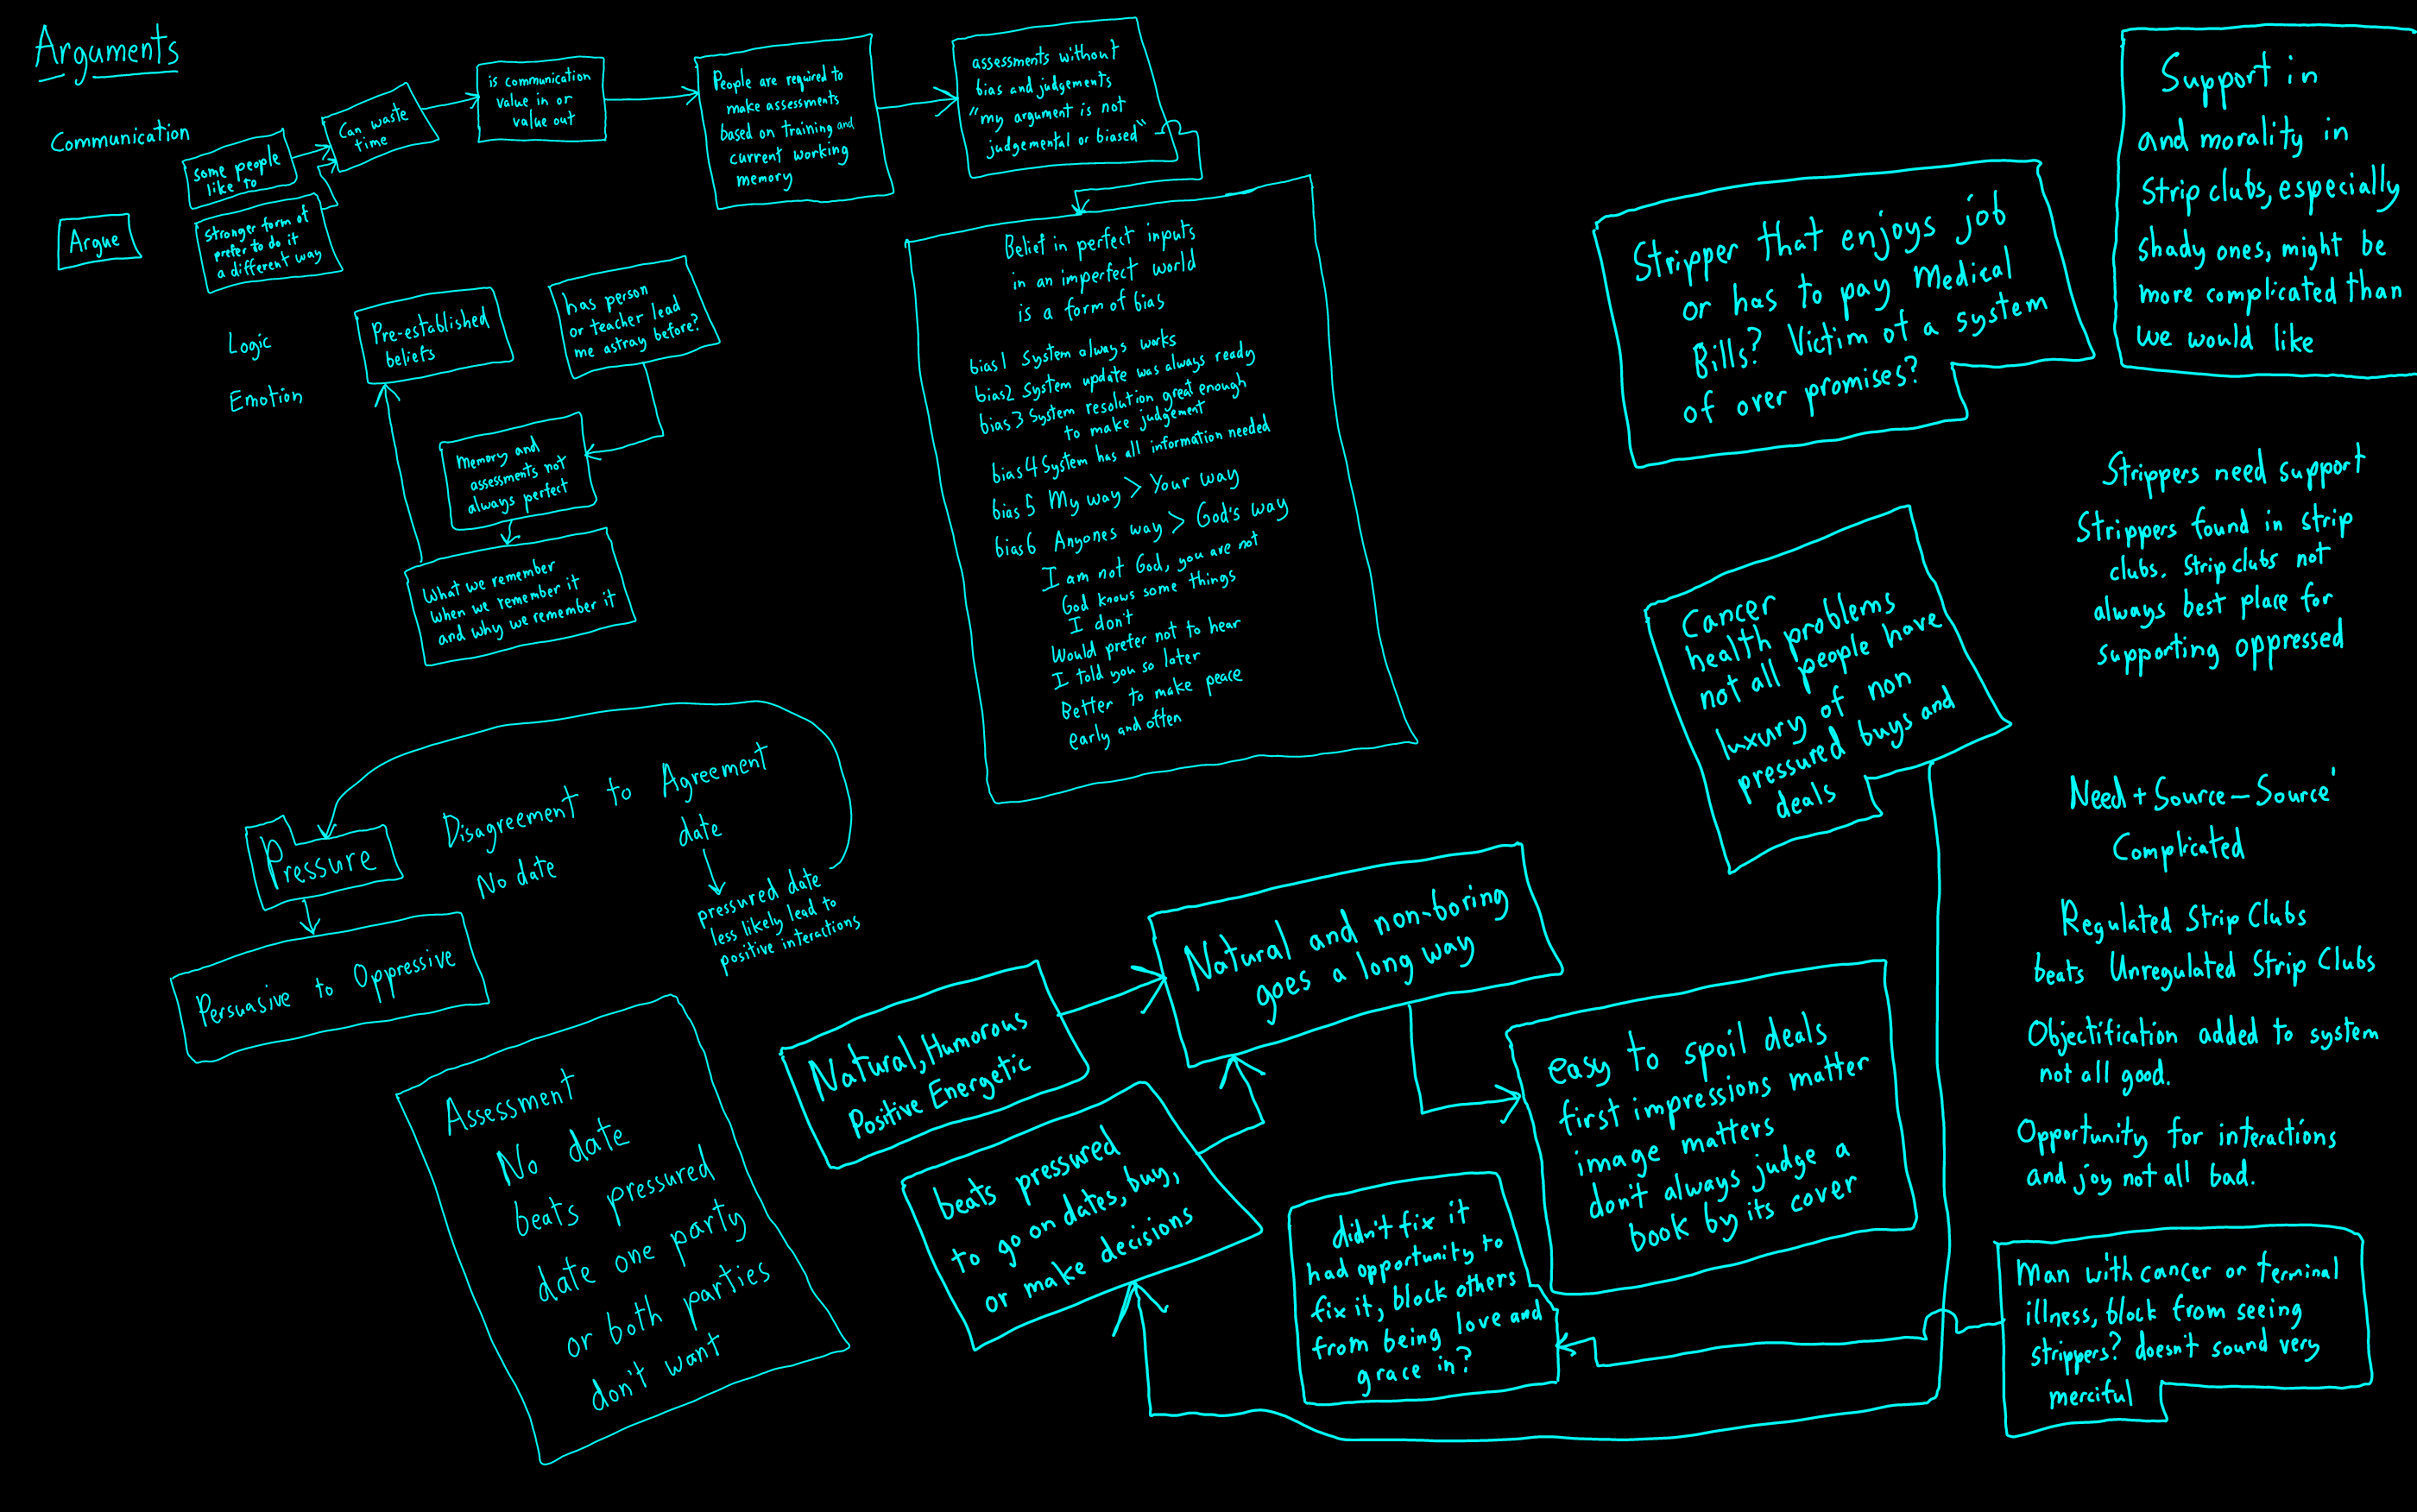 Arguments
Communication
Argue
some people
like to
Stronger form of
prefer to do it
a different way
Can waste
time
is communication
value in or
value out
People are required to
make assessments
based on training and
current working
memory
assessments without
bias and judgements
"my argument is not
judgemental or biased"
Logic
Emotion
Pre-established
beliefs
has person
or teacher lead
me astray before?
Memory and
assessments not
always perfect
What we remember
when we remember it
and why we remember it
Belief in perfect inputs
in an imperfect world
is a form of bias
bias1 System always works
bias2 System update was always ready
bias3 System resolution great enough
to make judgement
bias4 System has all information needed
bias5 My way > Your way
bias6 Anyones way > God's way
I am not God, you are not
God knows some things
I don't
Would prefer not to hear
I told you so later
Better to make peace
early and often
Pressure
Persuasive to Oppressive
Disagreement to Agreement
No date
date
pressured date
less likely lead to
positive interactions
Assessment
No date
beats pressured
date one party
or both parties
don't want
Natural, Humorous
Positive Energetic
beats pressured
to go on dates, buy,
or make decisions
Natural and non-boring
goes a long way
easy to spoil deals
first impressions matter
image matters
don't always judge a
book by its cover
didn't fix it
had opportunity to
fix it, block others
from being love and
grace in?
Stripper that enjoys job
or has to pay Medical
Bills? Victim of a system
of over promises?
Cancer
health problems
not all people have
luxury of non
pressured buys and
deals
Support in
and morality in
Strip clubs, especially
shady ones, might be
more complicated than
we would like
Strippers need support
Strippers found in strip
clubs. Strip clubs not
always best place for
supporting oppressed
Need + Source - Source'
Complicated
Regulated Strip Clubs
beats Unregulated Strip Clubs
Objectification added to system
not all good.
Opportunity for interactions
and joy not all bad.
Man with cancer or terminal
illness, block from seeing
strippers? doesn't sound very
merciful